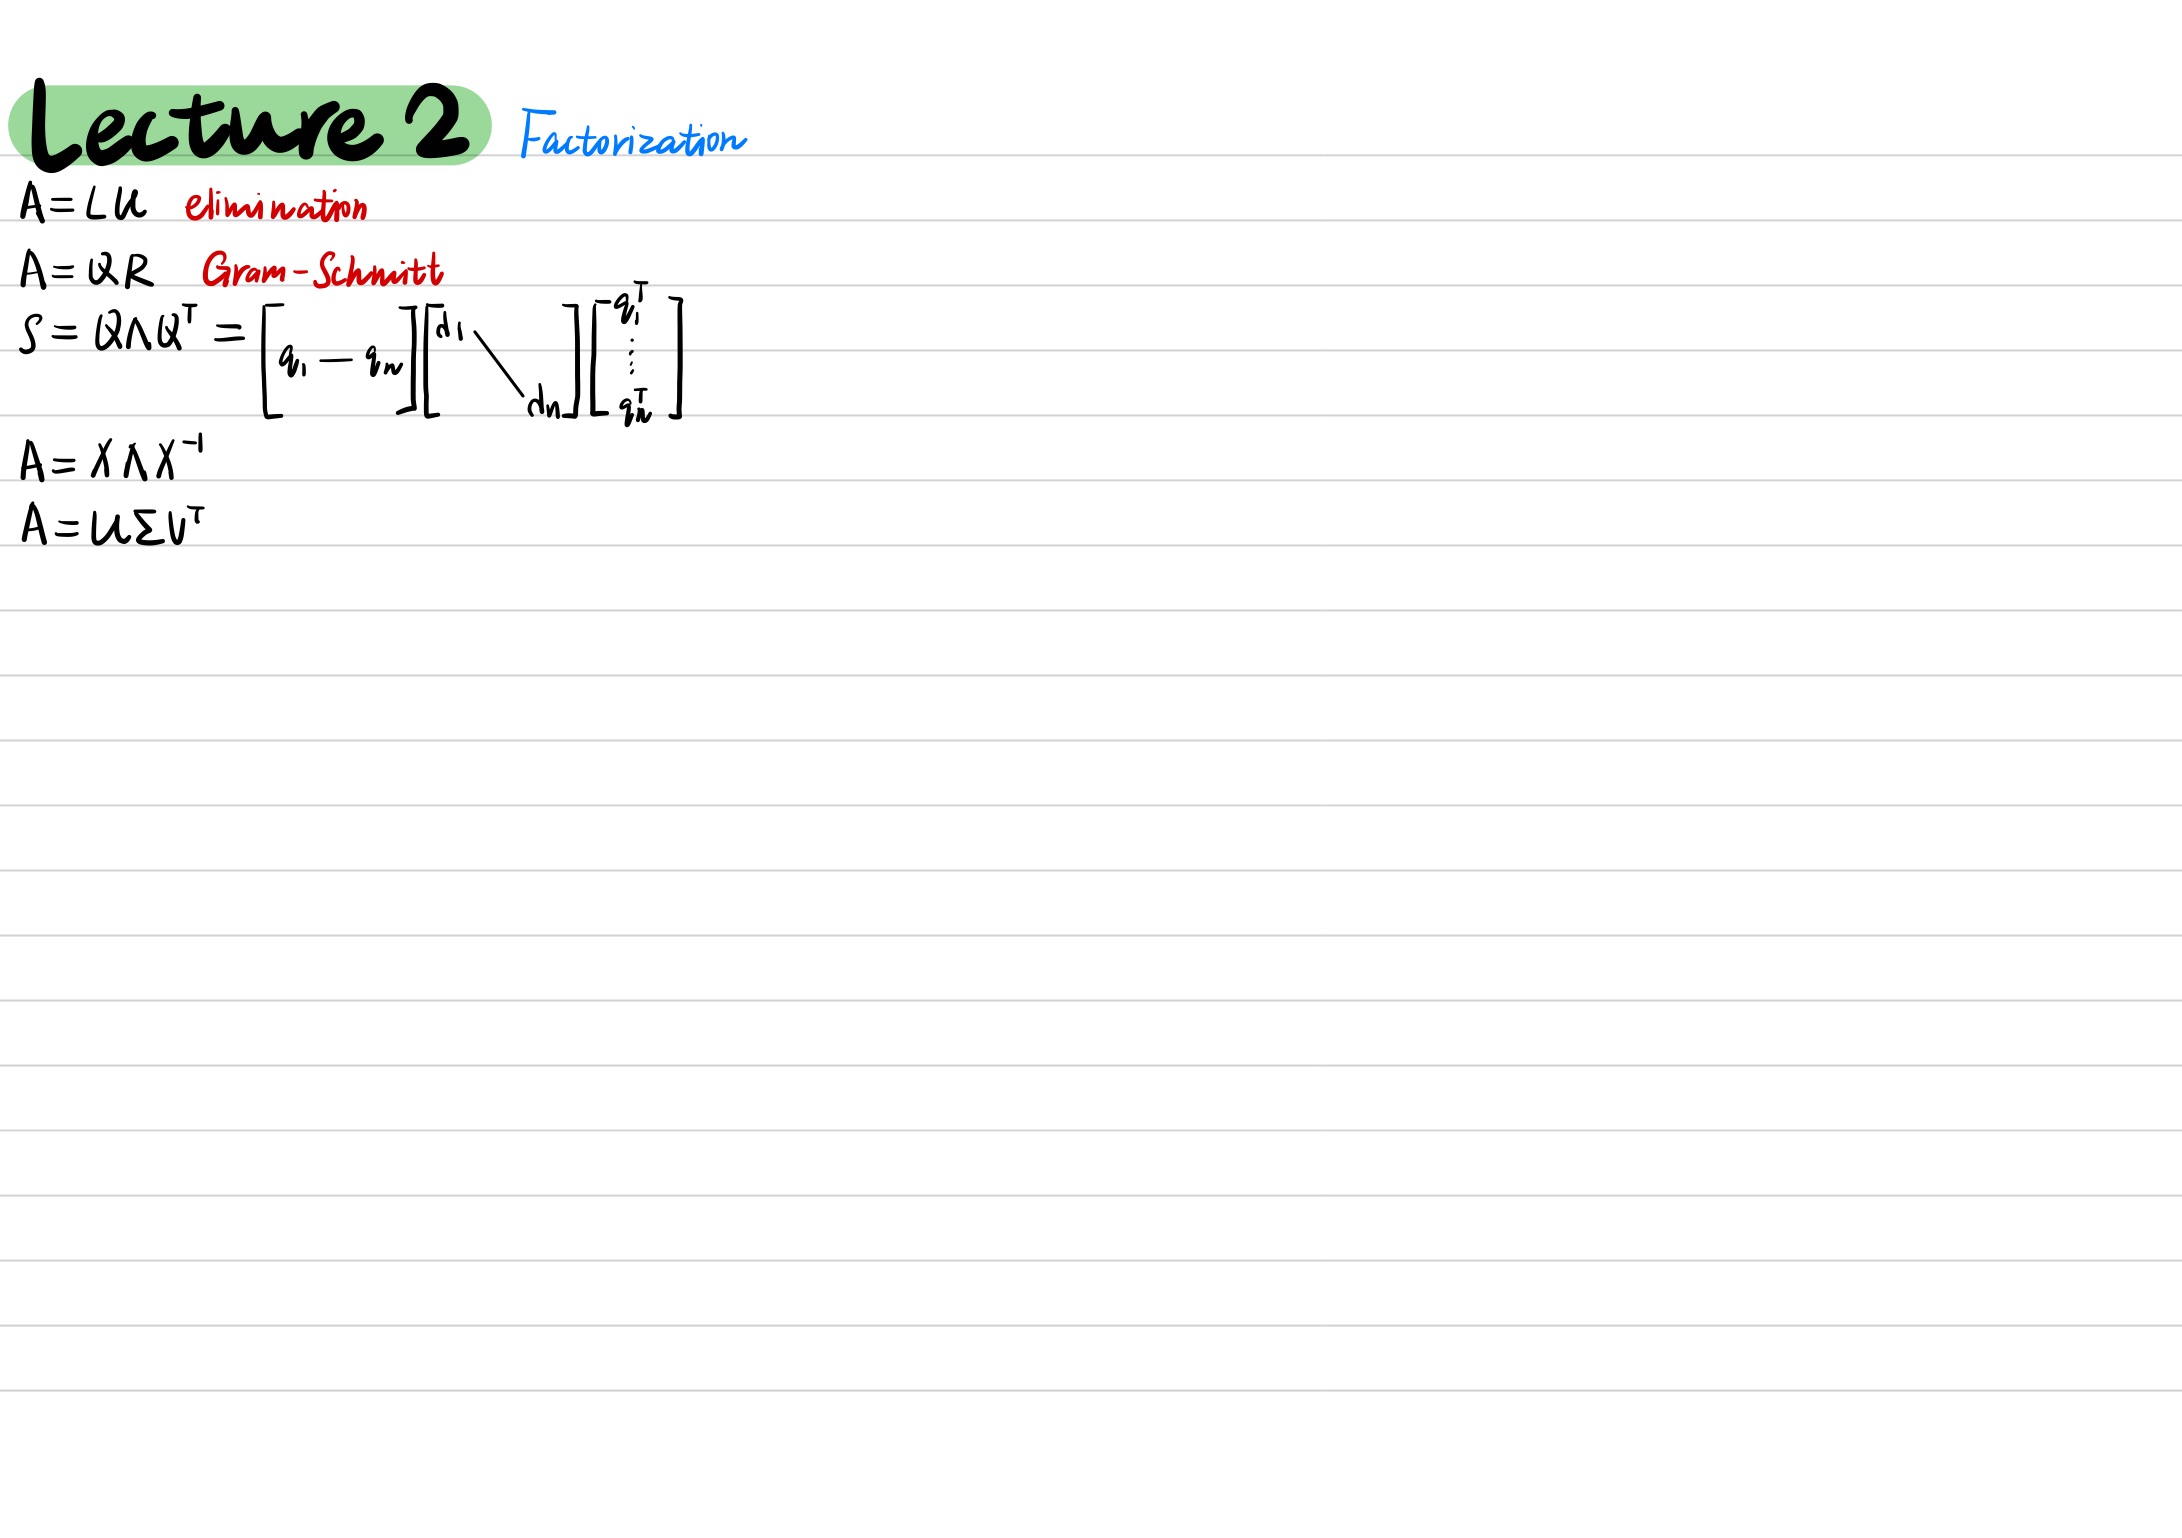 Lecture 2 Factorization
A = LU elimination
A = QR Gram-Schmitt
S = QΛQᵀ = [q₁ — qₙ] [d₁ \ dₙ] [q₁ᵀ ⋮ qₙᵀ]
A = XΛX⁻¹
A = UΣVᵀ